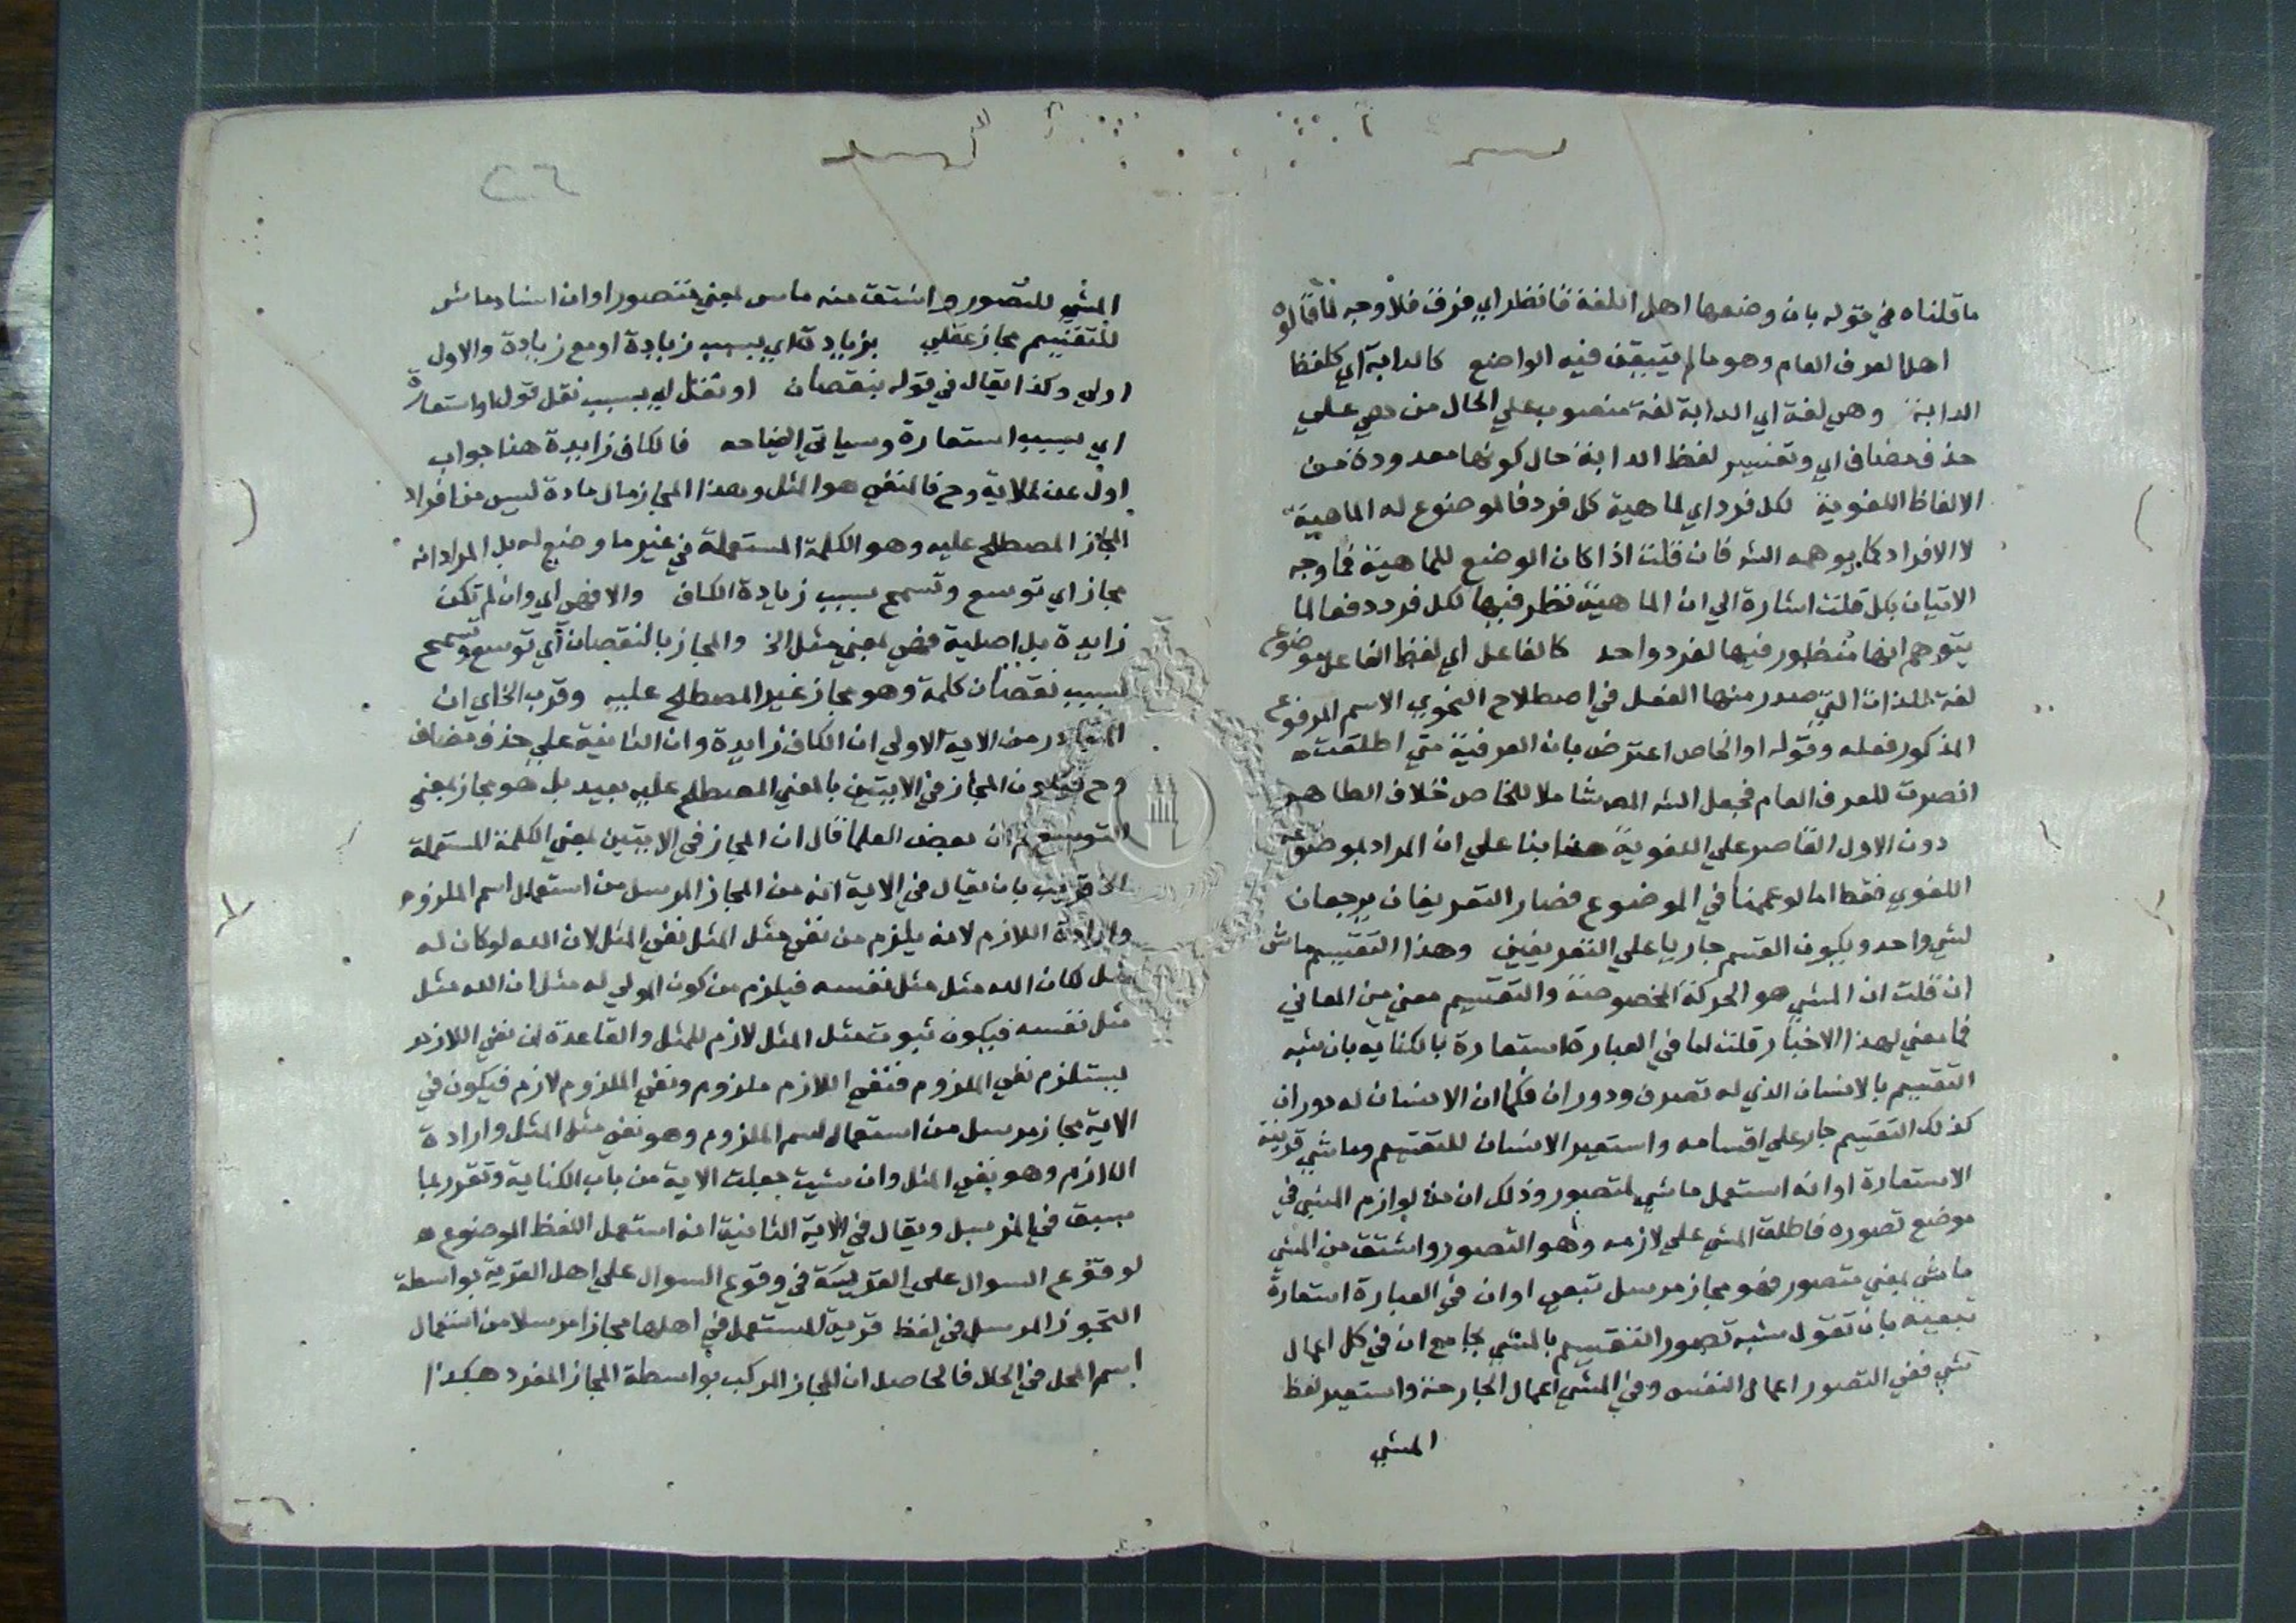 ما قلناه في قوله بان وضعها اهل اللغة فانظر اي فرق فلا وجه لما قالوه
اهل العرف العام وهو ما لم يتيقن فيه الواضع كالدابة اي كلفظ
الدابة وهي لغة اي الدابة لغة منصوب علي الحال من هي علي
حذف مضاف اي وتفسير لفظ الدابة حال كونها معدودة من
الالفاظ اللغوية لكل فرد اي لماهية كل فرد فالموضوع له الماهية
لا الافراد كما يوهمه الشه فان قلت اذا كان الوضع للماهية فما وجه
الاتيان بكل قلت اشارة الي ان الماهية نظر فيها لكل فرد دفعا لما
يتوهم انها منظور فيها لفرد واحد كالفاعل اي لفظ الفاعل موضوع
لغة للذات التي صدر منها الفعل في اصطلاح النحوي الاسم المرفوع
المذكور فعله وقوله او الخاص اعترض بان العرفية متي اطلقت
انصرت للعرف العام فجعل الشه المص شاملا للخاص خلاف الظاهر
دون الاول القاصر علي اللغوية هذا بنا علي ان المراد بموضوعه
اللغوي فقط اما لو عممنا في الموضوع فصار التعريفان يرجعان
لشي واحد ويكون القسم جاريا علي التعريفين وهذا التقسيم ماش
ان قلت ان المشي هو الحركة المخصوصة والتقسيم معني من المعاني
فما معني لهذا الاخبار قلت اما في العبارة استعارة بالكناية بان شبه
التقسيم بالانسان الذي له تصرف ودوران فكما ان الانسان له دوران
كذلك التقسيم جار علي اقسامه واستعير الانسان للتقسيم وماشي قرينة
الاستعارة او انه استعمل ماشي لمتصور وذلك ان من لوازم المشي في
موضع تصوره فاطلق المشي علي لازمه وهو التصور واشتق من المشي
ماش بمعني متصور فهو مجاز مرسل تبعي او ان في العبارة استعارة
تبعية بان تقول شبه تصور التقسيم بالمشي بجامع ان في كل اعمال
شي ففي التصور اعمال النفس وفي المشي اعمال الجارحة واستعير لفظ
المشي
٢٦
المشي للتصور واشتق منه ماش بمعني متصور او ان اسناد ماش
للتقسيم مجاز عقلي بزيادة اي بسبب زيادة او مع زيادة والاول
اولي وكذا يقال في قوله بنقصان او نقل اي بسبب نقل قوله او استعارة
اي بسبب استعارة وسياتي ايضاحه فالكاف زايدة هنا جواب
اول عن الاية وح فالمنفي هو المثل وهذا المجاز مال مادة ليس من افراد
المجاز المصطلح عليه وهو الكلمة المستعملة في غير ما وضع له بل المراد انه
مجاز اي توسع وتسمح بسبب زيادة الكاف والا فهي اي وان لم تكن
زايدة بل اصلية فهي بمعني مثل الخ والمجاز بالنقصان اي توسع وتسمح
بسبب نقصان كلمة وهو مجاز غير المصطلح عليه وقرب الخ اي ان
المتبادر من الاية الاولي ان الكاف زايدة وان الثانية علي حذف مضاف
وح فكون المجاز في الايتين بالمعني المصطلح عليه بعيد بل هو مجاز بمعني
التوسع ثم ان بعض العلما قال ان المجاز في الايتين بمعني الكلمة المستعملة
الخ قريب بان يقال في الاية انه من المجاز المرسل من استعمال اسم الملزوم
وارادة اللازم لانه يلزم من نفي مثل المثل نفي المثل لان الله لو كان له
مثل لكان الله مثل مثل نفسه فيلزم من كون المولي له مثل ان الله مثل
مثل نفسه فيكون ثبوت مثل المثل لازم للمثل والقاعدة ان نفي اللازم
يستلزم نفي الملزوم فنفي اللازم ملزوم ونفي الملزوم لازم فيكون في
الاية مجاز مرسل من استعمال اسم الملزوم وهو نفي مثل المثل وارادة
اللازم وهو نفي المثل وان شيت جعلت الاية من باب الكناية وتقرر بما
سبق في المرسل ويقال في الاية الثانية انه استعمل اللفظ الموضوع
لوقوع السوال علي القرية في وقوع السوال علي اهل القرية بواسطة
التجوز المرسل في لفظ قرية المستعمل في اهلها مجازا مرسلا من استعمال
اسم المحل في الحال فالحاصل ان المجاز المركب بواسطة المجاز المفرد هكذا